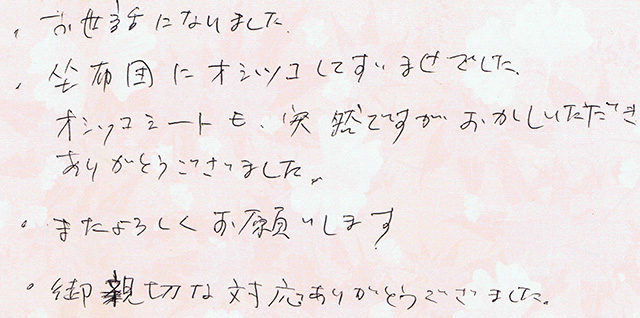 ・お世話になりました.
・坐布団にオシッコしてすいませでした.
オシッコシートも、突然ですがおかしいただき
ありがとうございました。
・またよろしくお願いします
・御親切な対応ありがとうございました.